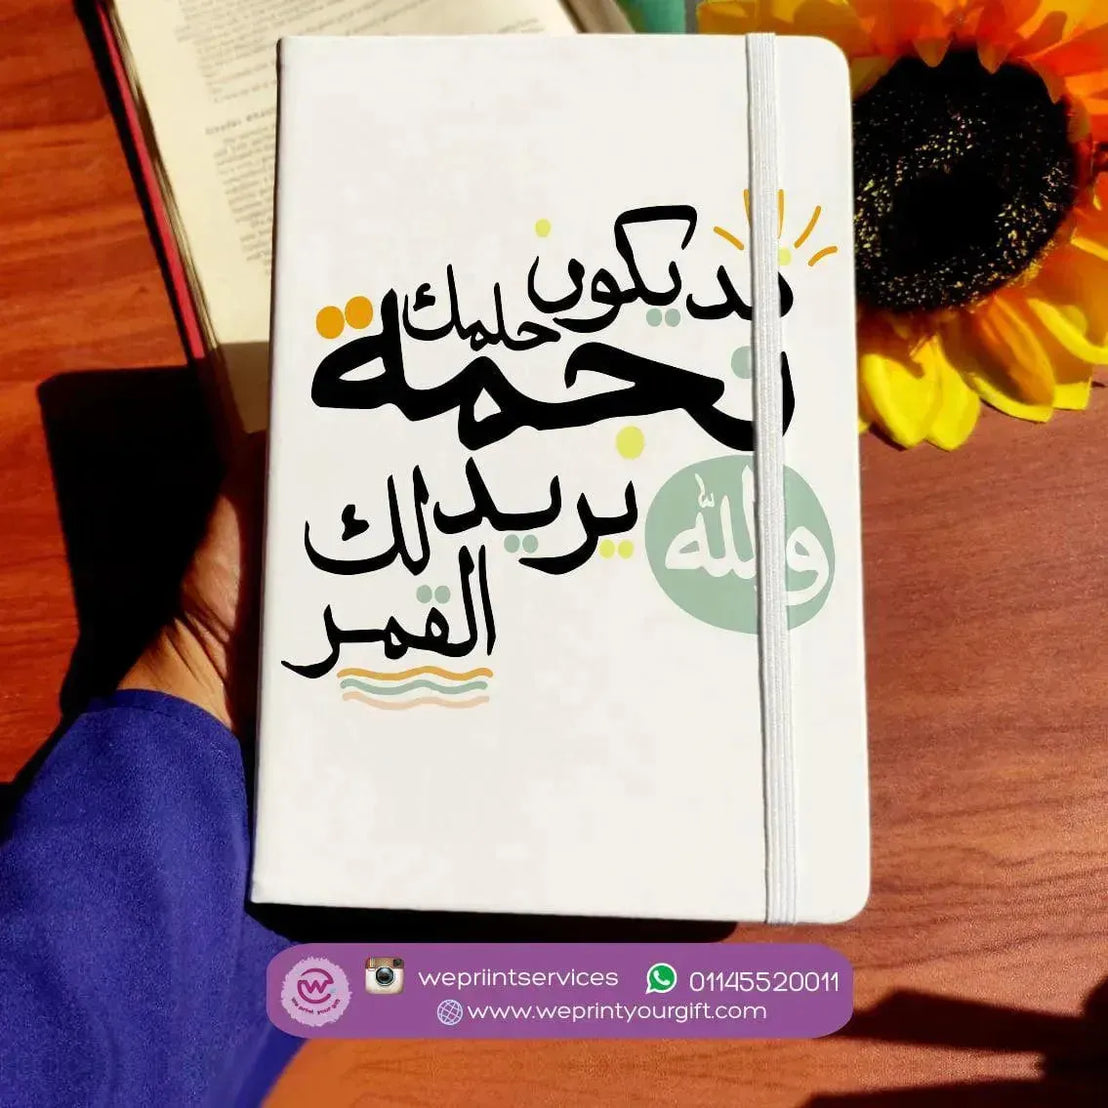 قد يكون حلمك
نجمة
والله يريد لك
القمر
we print your gift
wepriintservices 01145520011
www.weprintyourgift.com